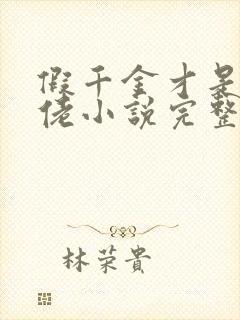 假千金才是
佬小說完整
林荣貴